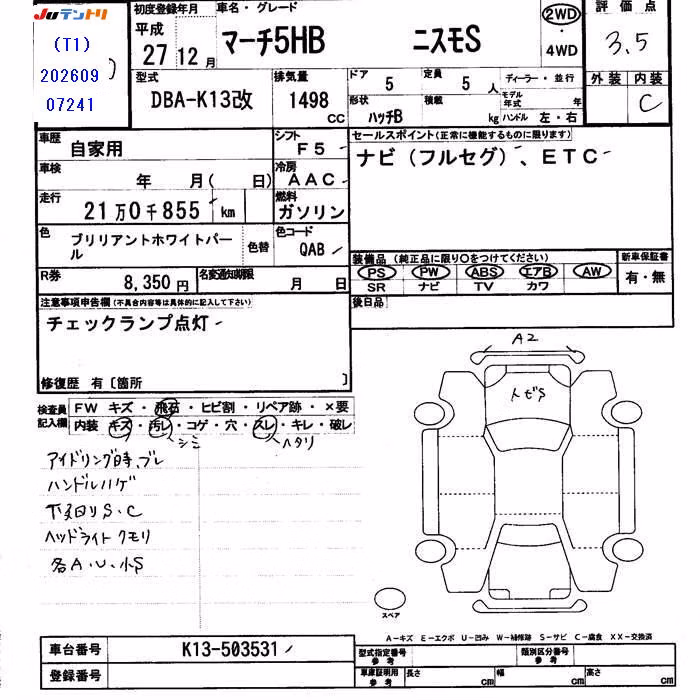 Juテントリ
(T1)
202609
07241
初度登録年月
平成
27 12月
車名・グレード
マーチ5HB ニスモS
2WD
・
4WD
評価点
3.5
外装 内装
C
型式
DBA-K13改
排気量
1498
CC
ドア
5
定員
5 人
ディーラー・並行
形状
ハッチB
積載
kg
モデル年式 年
ハンドル 左・右
車歴
自家用
シフト
F5
車検
年 月( 日)
冷房
AAC
走行
21万0千855 km
燃料
ガソリン
色
ブリリアントホワイトパール
色替
色コード
QAB
R券
8,350円
名変通知期限
月 日
セールスポイント(正常に機能するものに限ります)
ナビ(フルセグ)、ETC
装備品(純正品に限り○をつけてください)
PS PW ABS エアB AW
SR ナビ TV カワ
新車保証書
有・無
後日品
注意事項申告欄(不具合内容等は具体的に記入して下さい)
チェックランプ点灯
修復歴 有〔箇所 〕
検査員記入欄
FW キズ・飛石・ヒビ割・リペア跡・×要
内装 キズ・汚レ・コゲ・穴・スレ・キレ・破レ
シミ
ヘタリ
アイドリング時、ブレ
ハンドルハゲ
下回りS・C
ヘッドライトクモリ
各A・U・小S
A2
トビS
スペア
A−キズ E−エクボ U−凹み W−補修跡 S−サビ C−腐食 XX−交換済
車台番号
K13-503531
登録番号
型式指定番号
参考
類別区分番号
参考
車庫証明用
参考
長さ cm
幅 cm
高さ cm